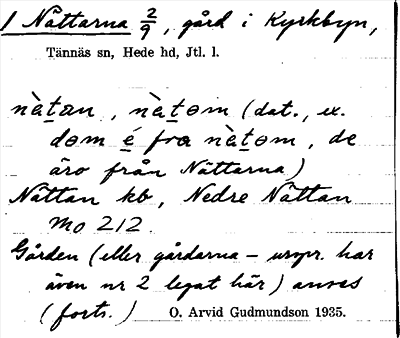 1 Nättarna 2/9, gård i Kyrkbyn,
Tännäs sn, Hede hd, Jtl. l.
nè̀tan, nè̀tom (dat., ex.
dom é fra nè̀tom, de
äro från Nättarna)
Nättan kb, Nedre Nättan
Mo 212.
Gården (eller gårdarna – urspr. har
även nr 2 legat här) anses
(forts.)
O. Arvid Gudmundson 1935.